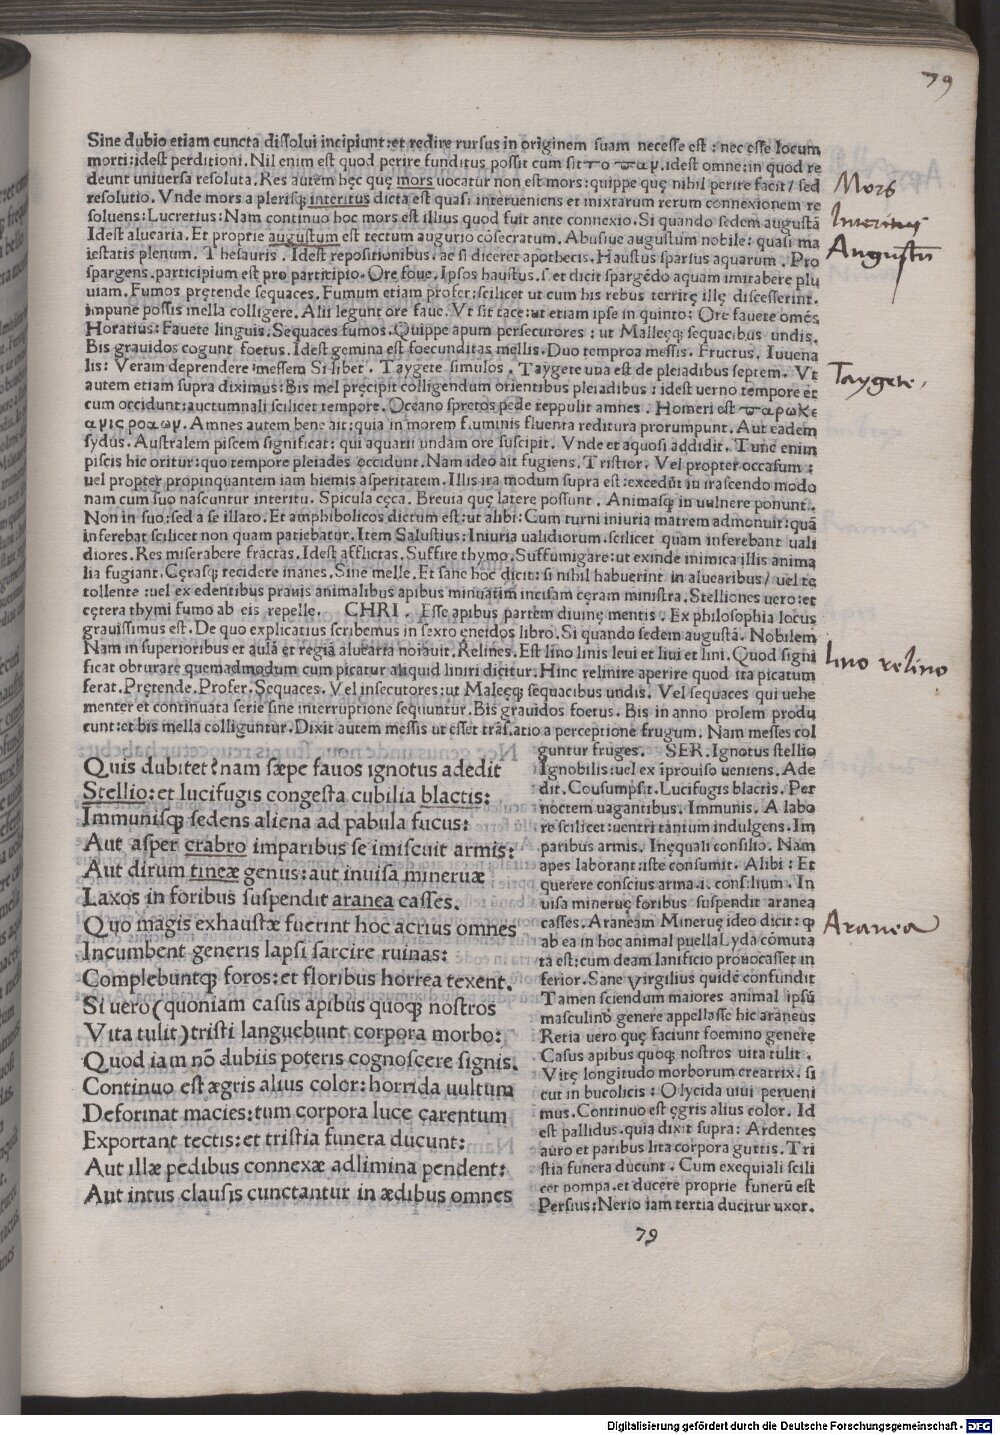 79
Sine dubio etiam cuncta dissolui incipiunt: et redire rursus in originem suam necesse est: nec esse locum
morti: idest perditioni. Nil enim est quod perire funditus possit cum sit το παν. idest omne: in quod re
deunt uniuersa resoluta. Res autem hęc quę mors uocatur non est mors: quippe quę nihil perire facit/ sed
resolutio. Vnde mors a plerisq; interitus dicta est quasi interueniens et mixtarum rerum connexionem re
soluens: Lucretius: Nam continuo hoc mors est illius quod fuit ante connexio. Si quando sedem augustā
Idest aluearia. Et proprie augustum est tectum augurio cōsecratum. Abusiue augustum nobile: quasi ma
iestatis plenum. Thesauris. Idest repositionibus. ac si diceret apothecis. Haustus sparsus aquarum. Pro
spargens. participium est pro participio. Ore foue. Ipsos haustus. s. et dicit spargēdo aquam imitabere plu
uiam. Fumos prętende sequaces. Fumum etiam profer: scilicet ut cum his rebus territę illę discesserint.
impune possis mella colligere. Alii legunt ore faue. Vt sit tace: ut etiam ipse in quinto: Ore fauete omēs
Horatius: Fauete linguis. Sequaces fumos. Quippe apum persecutores: ut Malęęq; sequacibus undis.
Bis grauidos cogunt foetus. Idest gemina est foecunditas mellis. Duo tempora messis. Fructus. Iuuena
lis: Veram deprendere messem Si libet. Taygete simulos. Taygete una est de pleiadibus septem. Vt
autem etiam supra diximus: Bis mel pręcipit colligendum orientibus pleiadibus: idest uerno tempore et
cum occidunt: auctumnali scilicet tempore. Oceano spretos pede reppulit amnes. Homeri est παρωκε
ανις ροαων. Amnes autem bene ait: quia in morem fluminis fluenta reditura prorumpunt. Aut eadem
sydus. Australem piscem significat: qui aquarii undam ore suscipit. Vnde et aquosi addidit. Tunc enim
piscis hic oritur: quo tempore pleiades occidunt. Nam ideo ait fugiens. Tristior. Vel propter occasum:
uel propter propinquantem iam hiemis asperitatem. Illis ira modum supra est: excedūt in irascendo modo
nam cum suo nascuntur interitu. Spicula cęca. Breuia quę latere possunt. Animasq; in uulnere ponunt.
Non in suo: sed a se illato. Et amphibolicos dictum est: ut alibi: Cum turni iniuria matrem admonuit: quā
inferebat scilicet non quam patiebatur. Item Salustius: Iniuria ualidiorum. scilicet quam inferebant uali
diores. Res miserabere fractas. Idest afflictas. Suffire thymo. Suffumigare: ut exinde inimica illis anima
lia fugiant. Cęrasq; recidere inanes. Sine melle. Et sane hoc dicit: si nihil habuerint in aluearibus/ uel te
tollente: uel ex edentibus prauis animalibus apibus minuatim incisam cęram ministra. Stelliones uero: et
cętera thymi fumo ab eis repelle. CHRI. Esse apibus partem diuinę mentis. Ex philosophia locus
grauissimus est. De quo explicatius scribemus in sexto ęneidos libro. Si quando sedem augustā. Nobilem
Nam in superioribus et aulā et regiā aluearia notauit. Relines. Est lino linis leui et liui et lini. Quod signi
ficat obturare quemadmodum cum picatur aliquid liniri dicitur. Hinc relinire aperire quod ita picatum
ferat. Prętende. Profer. Sequaces. Vel insecutores: ut Malęęq; sequacibus undis. Vel sequaces qui uehe
menter et continuata serie sine interruptione sequuntur. Bis grauidos foetus. Bis in anno prolem produ
cunt: et bis mella colliguntur. Dixit autem messis ut esset trāslatio a perceptione frugum. Nam messes col
guntur fruges. SER. Ignotus stellio
Ignobilis: uel ex īprouiso ueniens. Ade
dit. Cousumpsit. Lucifugis blactis. Per
noctem uagantibus. Immunis. A labo
re scilicet: uentri tantum indulgens. Im
paribus armis. Inęquali consilio. Nam
apes laborant: iste consumit. Alibi: Et
querere conscius arma. i. consilium. In
uisa mineruę foribus suspendit aranea
casses. Araneam Mineruę ideo dicit: q
ab ea in hoc animal puella Lyda cōmuta
ta est: cum deam lanificio prouocasset in
ferior. Sane virgilius quidē confundit
Tamen sciendum maiores animal ipsū
masculino genere appellasse hic araneus
Retia uero quę faciunt foemino genere
Casus apibus quoq; nostros uita tulit.
Vitę longitudo morborum creatrix. si
cut in bucolicis: O lycida uiui perueni
mus. Continuo est ęgris alius color. Id
est pallidus. quia dixit supra: Ardentes
auro et paribus lita corpora guttis. Tri
stia funera ducunt. Cum exequiali scili
cet pompa. et ducere proprie funerū est
Persius: Nerio iam tertia ducitur uxor.
Quis dubitet? nam sæpe fauos ignotus adedit
Stellio: et lucifugis congesta cubilia blactis:
Immunisq; sedens aliena ad pabula fucus:
Aut asper crabro imparibus se imiscuit armis:
Aut dirum tineæ genus: aut inuisa mineruæ
Laxos in foribus suspendit aranea casses.
Quo magis exhaustæ fuerint hoc acrius omnes
Incumbent generis lapsi sarcire ruinas:
Complebuntq; foros: et floribus horrea texent.
Si uero (quoniam casus apibus quoq; nostros
Vita tulit) tristi languebunt corpora morbo:
Quod iam nō dubiis poteris cognoscere signis.
Continuo est ægris alius color: horrida uultum
Deformat macies: tum corpora luce carentum
Exportant tectis: et tristia funera ducunt:
Aut illæ pedibus connexæ ad limina pendent:
Aut intus clausis cunctantur in ædibus omnes
Mors
Interitus
Augustū
Taygete.
lino relino
Aranea
79
Digitalisierung gefördert durch die Deutsche Forschungsgemeinschaft - DFG